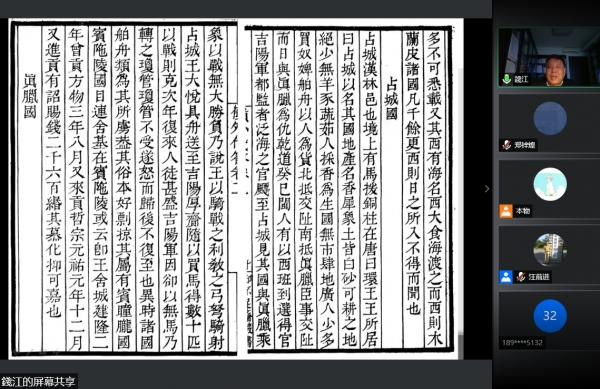 多不可悉載又其西有海名西大食海渡之而西則木
蘭皮諸國凡千餘更西則日之所入不得而聞也
占城國
占城漢林邑也境上有馬援銅柱在唐曰環王王所居
曰占城以名其國地產名香犀象土皆白砂可耕之地
絕少無羊豕蔬茹人採香為生國無市肆地廣人少多
買奴婢舶舟以人為貨北抵交趾南抵眞臘臣事交趾
而日與眞臘為仇乾道癸巳閩人有以西班到選得官
吉陽軍都監者泛海之官飄至占城見其國與眞臘乘
象以戰無大勝負乃說王以騎戰之利敎之弓弩騎射
占城王大悅具舟送至吉陽厚齎隨以買馬得數十匹
以戰則克次年復來人徒甚盛吉陽軍因卻以無馬乃
轉之瓊管瓊管不受遂怒而歸後不復至也異時諸國
舶舟類為其所虜葢其俗本好剽掠其屬有賓瞳朧國
賓陁陵國目連舍基在賓陁陵或云卽王舍城建隆二
年曾貢方物三年八月又來貢哲宗元祐元年十二月
又進貢有詔賜錢二千六百緡其慕化抑可嘉也
眞臘國
錢江
郑梓煌
本物
汪前进
32
189****5132
錢江的屏幕共享